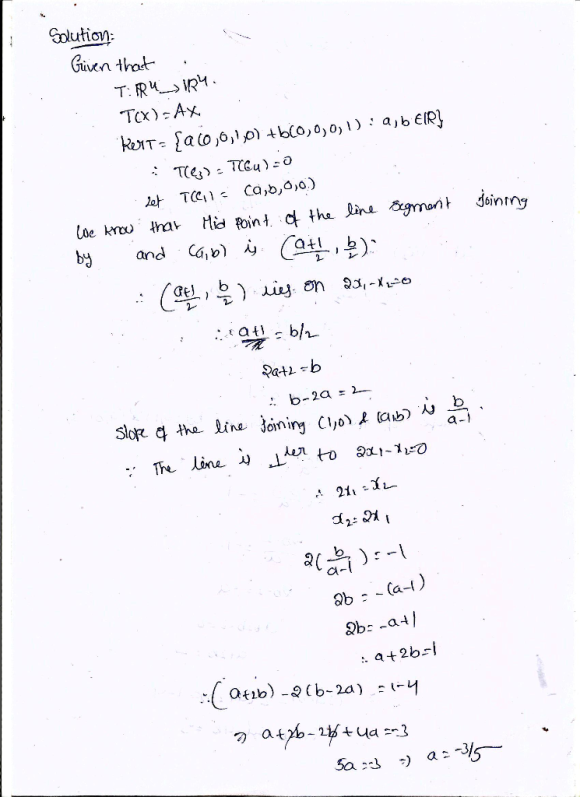 Solution:
Given that
T: ℝ⁴ → ℝ⁴.
T(x) = Ax
Ker T = {a(0,0,1,0) + b(0,0,0,1) : a,b ∈ ℝ}
∴ T(e₃) = T(e₄) = 0
Let T(e₁) = (a,b,0,0.)
We know that Mid point of the line segment joining
by and (a,b) is ((a+1)/2, b/2):
∴ ((a+1)/2, b/2) lies on 2x₁-x₂=0
∴ a+1 = b/2
2a+2 = b
∴ b-2a = 2
Slope of the line joining (1,0) & (a,b) is b/(a-1).
∵ The line is ⊥ler to 2x₁-x₂=0
∴ 2x₁ = x₂
x₂ = 2x₁
2(b/(a-1)) = -1
2b = -(a-1)
2b = -a+1
∴ a+2b=1
∴ (a+2b) - 2(b-2a) = 1-4
⇒ a+2b-2b+4a = -3
5a = -3 ⇒ a = -3/5